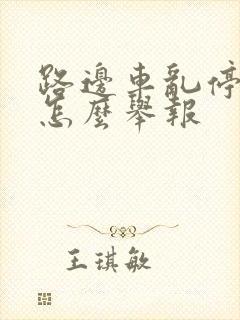 路邊車亂停
怎麼舉報
王琪敏